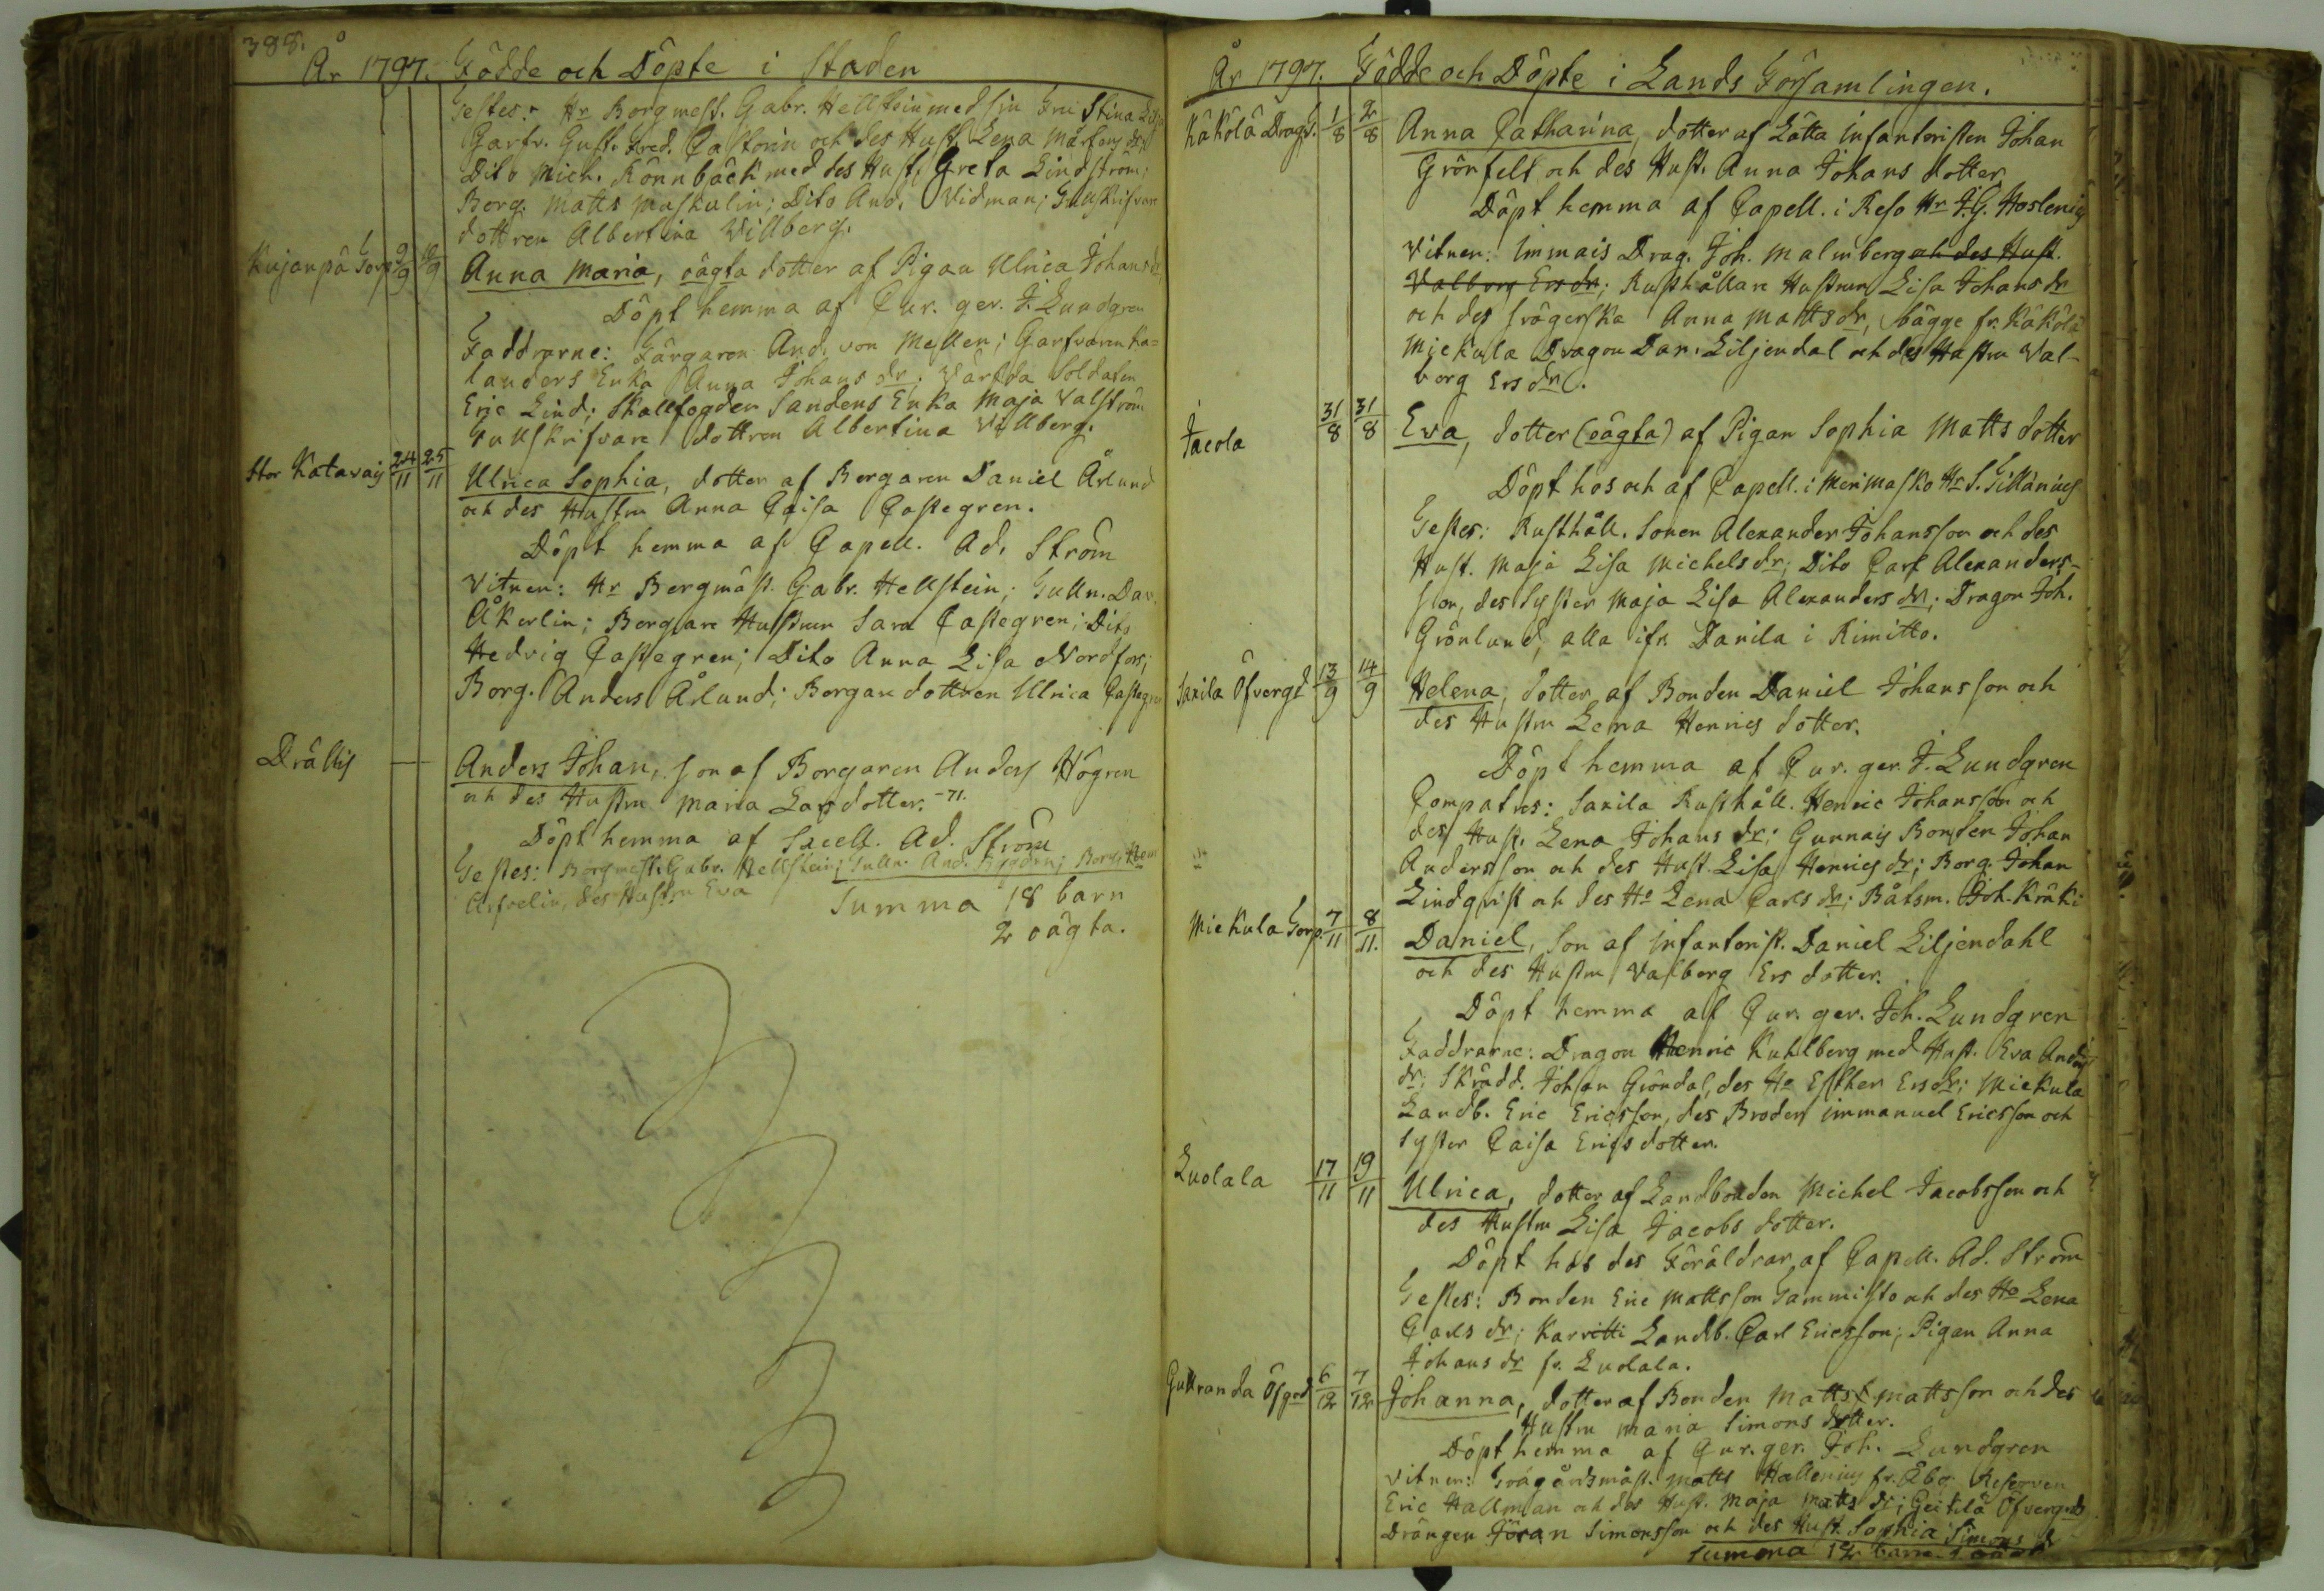 388.
År 1797. Födde och Döpte i Staden
Testes: Hr Borgmest. Gabr. Hellstein med sin Fru Stina
Garfv. Gust. Fred. Castorin och des Hust. Lena Mårtens dr;
Dito Mich. Rönnbäck med des Hust. Greta Lindström;
Borg. Matts Maskulin; Dito And. Vidman; Gullskrifvare
dottren Albertina Villberg.
Kujanpä Torp 9/9 10/9 Anna Maria, oägta dotter af Pigan Ulrica Johans dr,
Döpt hemma af Cur. ger. J. Lundgren
Faddrarne: Färgaren And. von Mellen; Garfvaren Ka=
landers Enka Anna Johans dr; Värfda Soldaten
Eric Lind; Skallfogden Sandens Enka Maja Valström
Gullskrifvare dottren Albertina Villberg.
Stor Katavais 24/11 25/11 Ulrica Sophia, dotter af Borgaren Daniel Ålund
och des Hustru Anna Caisa Castegren.
Döpt hemma af Capell. Ad. Ström
Vitnen: Hr Borgmäst. Gabr. Hellstein; Gulln. Dav.
Åkerlin; Borgare Hustrun Sara Castegren; Dito
Hedvig Castegren; Dito Anna Lisa Nordfors;
Borg. Anders Ålund; Borgare dottren Ulrica Castegren
Drällis — Anders Johan, son af Borgaren Anders Högren
och des Hustru Maria Larsdotter. -71.
Döpt hemma af Sacell. Ad. Ström
Testes: Borgmest. Gabr. Hellstein; Gulln. And. Borg.
Arfvelin, des Hustru Eva
Summa 18 barn
2 oägta.
År 1797. Födde och Döpte i Lands Församlingen.
Käkölä Drag. T. 1/8 2/8 Anna Catharina, dotter af Lätta Infanteristen Johan
Grönfelt och des Hust. Anna Johans dotter
Döpt hemma af Capell. i Reso Hr J. G. Haslenius
Vitnen: Immais Drag. Joh. Malmberg och des Hust.
Valborg Ersdr; Rusthållare Hustrun Lisa Johans dr
och des Svägerska Anna Matts dr, bägge fr. Käkölä
Miekula Dragon Dan. Liljendal och des Hustru Val-
borg Ers dr.
Jacola 31/8 31/8 Eva, dotter (oägta) af Pigan Sophia Matts dotter
Döpt hos och af Capell. i Merimasko Hr S. Gillänius
Testes: Rusthåll. Sonen Alexander Johansson och des
Hust. Maja Lisa Michels dr; Dito Carl Alexanders-
son, des Syster Maja Lisa Alexanders dr; Dragon Joh.
Grönlund, alla ifr. Danila i Rimitto.
Saxila Öfvergd 13/9 14/9 Helena, dotter af Bonden Daniel Johansson och
des Hustru Lena Henrics dotter.
Döpt hemma af Cur. ger. J. Lundgren
Compatres: Saxila Rusthåll. Henric Johansson och
des Hust. Lena Johans dr; Gunnais Bonden Johan
Andersson och des Hust. Lisa Henrics dr; Borg. Johan
Lindqvist och des Ho Lena Carls dr; Båtsm. Joh. Kräki
Miekula Torp. 7/11 8/11. Daniel, Son af Infanterist. Daniel Liljendahl
och des Hustru Valborg Ers dotter.
Döpt hemma af Cur. ger. Joh. Lundgren
Faddrarne: Dragon Henric Kuhlberg med Hust. Eva Anders
dr; Skrädd. Johan Gröndal, des Ho Esther Ersdr; Miekula
Landb. Eric Ericsson, des Broder Immanuel Ericsson och
Syster Caisa Ericsdotter.
Luolala 17/11 19/11 Ulrica, dotter af Landbonden Michel Jacobsson och
des Hustru Lisa Jacobs dotter.
Döpt hos des Föräldrar af Capell. Ad. Ström
Testes: Bonden Eric Mattsson Tammisto och des Ho Lena
Carls dr; Karvitti Landb. Carl Ericsson; Pigan Anna
Johans dr fr. Luolala.
Gullranda Öfgrd 6/12 7/12 Johanna, dotter af Bonden Matts Mattsson och des
Hustru Maria Simons dotter.
Döpt hemma af Cur. ger. Joh. Lundgren
Vitnen: Trägårdsmäst. Matts Hallenius fr. Åbo; Reserven
Eric Hallman och des Hust. Maja Matts dr; Geitilä Öfvergrds
Drängen Jöran Simonsson och des Hust. Sophia Simons dr
Summa 12 barn. 1 oägta